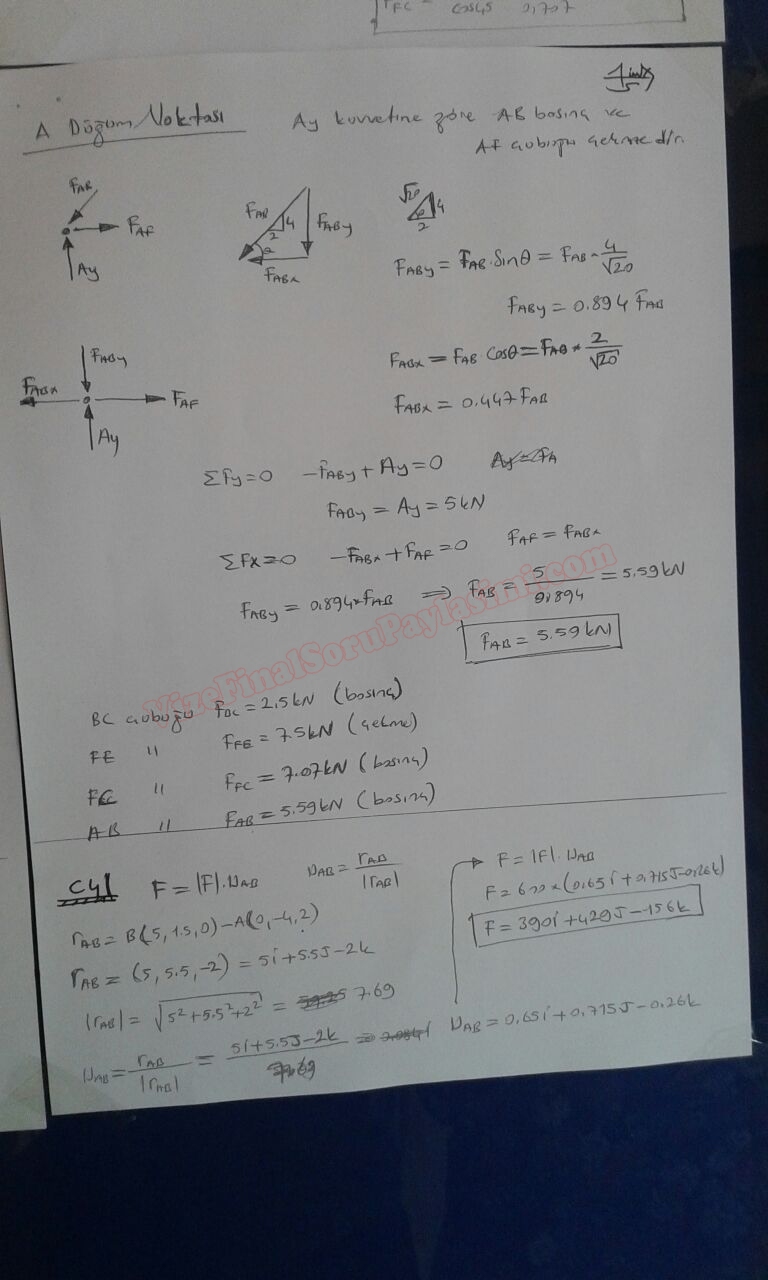 FC = cos45 0,707
A Düğüm Noktası
Ay kuvvetine göre AB basınç ve
AF çubuğu çekmedir.
FAB
FAF
Ay
FAB
4
2
θ
FABy
FABx
√20
θ
4
2
FABy = FAB.Sinθ = FAB * 4/√20
FABy = 0.894 FAB
FABx = FAB Cosθ = FAB * 2/√20
FABx = 0.447 FAB
FABy
FABx
FAF
Ay
ΣFy=0 -FABy + Ay = 0
FABy = Ay = 5kN
ΣFx=0 -FABx + FAF = 0 FAF = FABx
FABy = 0.894*FAB ⇒ FAB = 5/0.894 = 5.59kN
FAB = 5.59kN
VizeFinalSoruPaylasimi.com
BC çubuğu FBC = 2.5kN (basınç)
FE " FFE = 7.5kN (çekme)
FC " FFC = 7.07kN (basınç)
AB " FAB = 5.59kN (basınç)
C4 F = |F|.UAB UAB = rAB/|rAB|
rAB = B(5, 1.5, 0) - A(0, -4, 2)
rAB = (5, 5.5, -2) = 5i + 5.5J - 2k
|rAB| = √5²+5.5²+2² = 7.69
UAB = rAB/|rAB| = 5i+5.5J-2k/7.69
UAB = 0.65i + 0.715J - 0.26k
F = |F|.UAB
F = 600 x (0.65i + 0.715J - 0.26k)
F = 390i + 429J - 156k